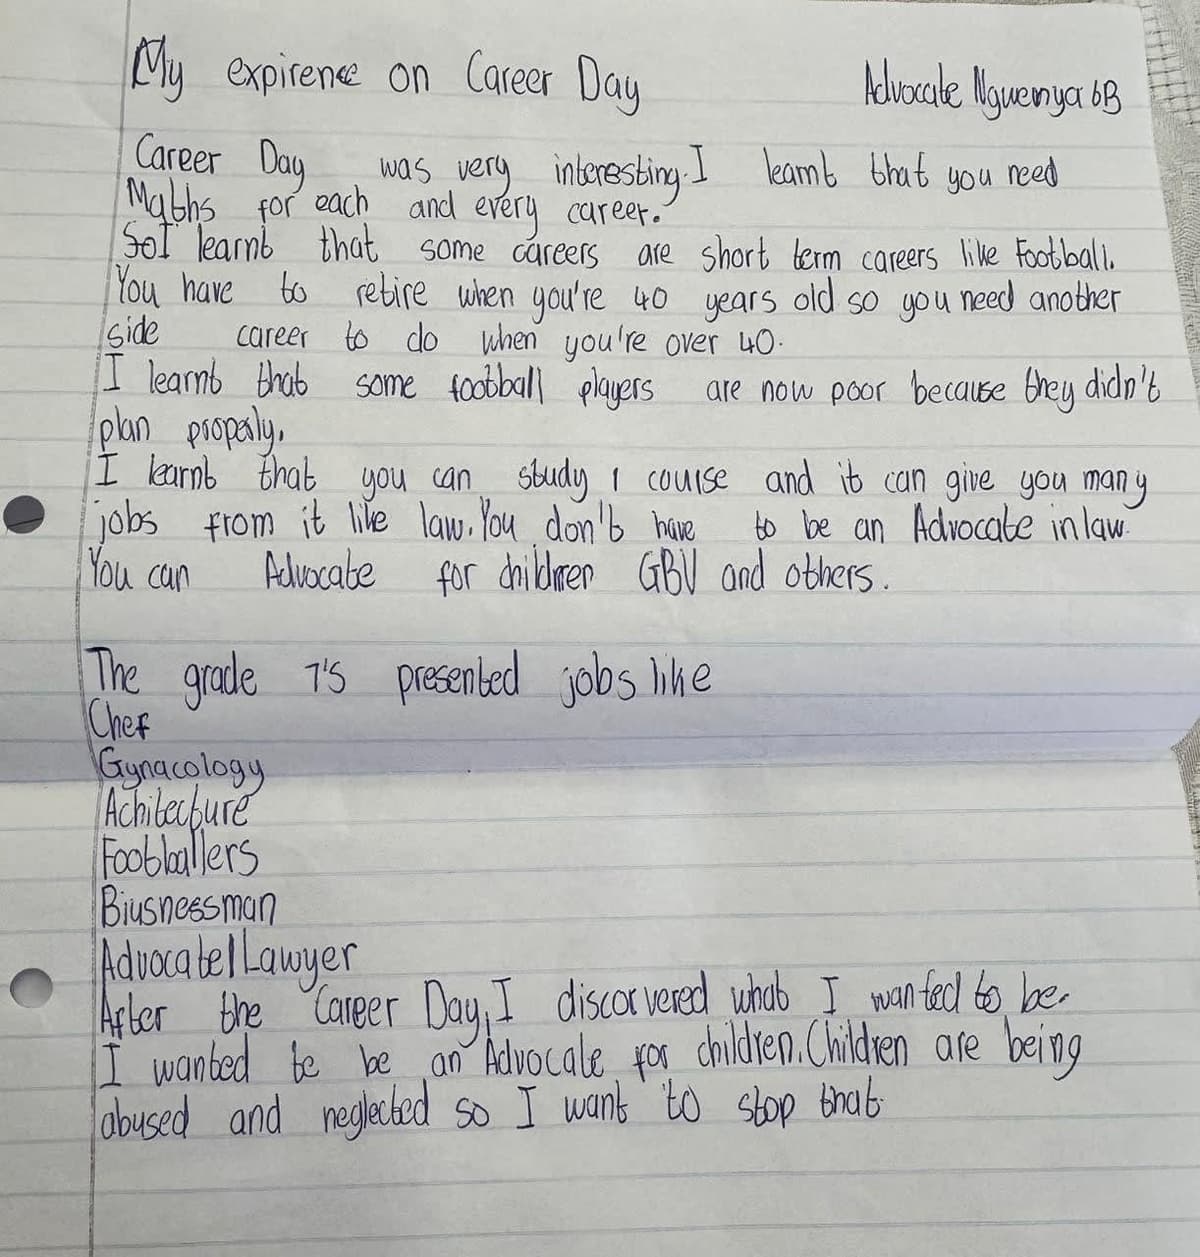 My expirence on Career Day
Advocate Nguemya 6B
Career Day was very interesting. I learnt that you need
Maths for each and every career.
So I learnt that some careers are short term careers like Football.
You have to retire when you're 40 years old so you need another
side career to do when you're over 40.
I learnt that some football players are now poor because they didn't
plan properly.
I learnt that you can study 1 course and it can give you many
jobs from it like law. You don't have to be an Advocate in law.
You can Advocate for children GBV and others.
The grade 7's presented jobs like
Chef
Gynacology
Achitecture
Footballers
Biusnessman
Advocate/Lawyer
After the Career Day, I discorvered what I wanted to be.
I wanted to be an Advocate for children. Children are being
abused and neglected so I want to stop that.